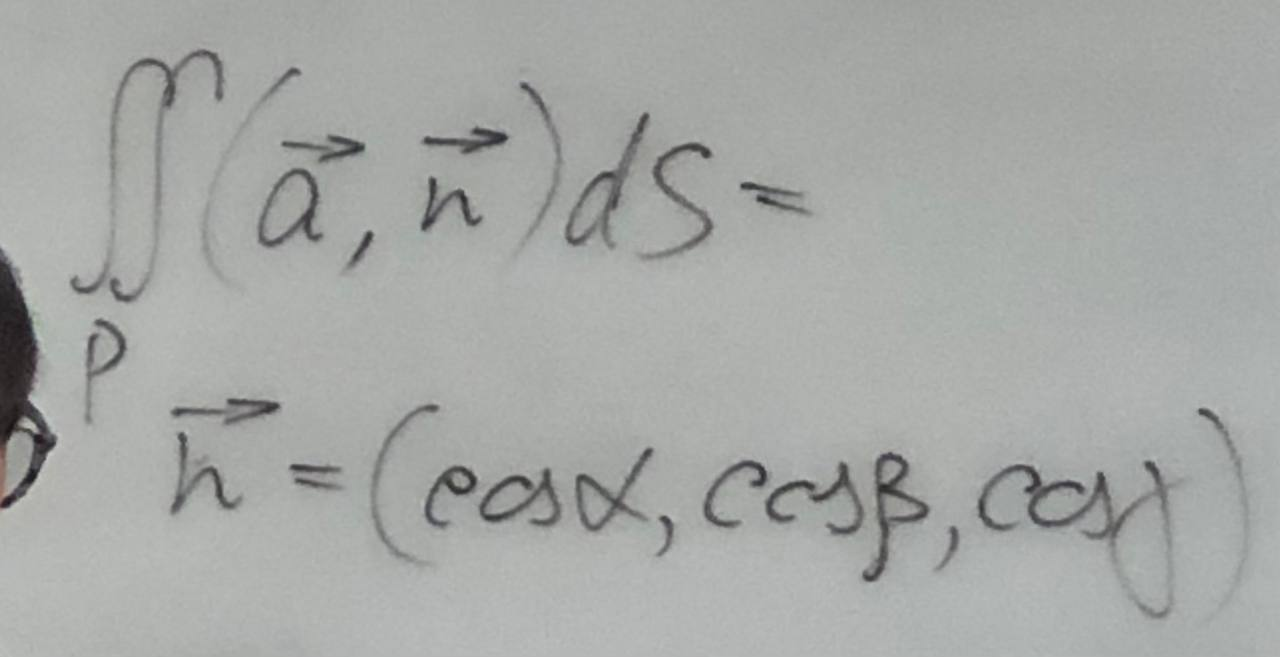 ∬(a⃗, n⃗)dS=
P
n⃗ = (cosα, cosβ, cosγ)